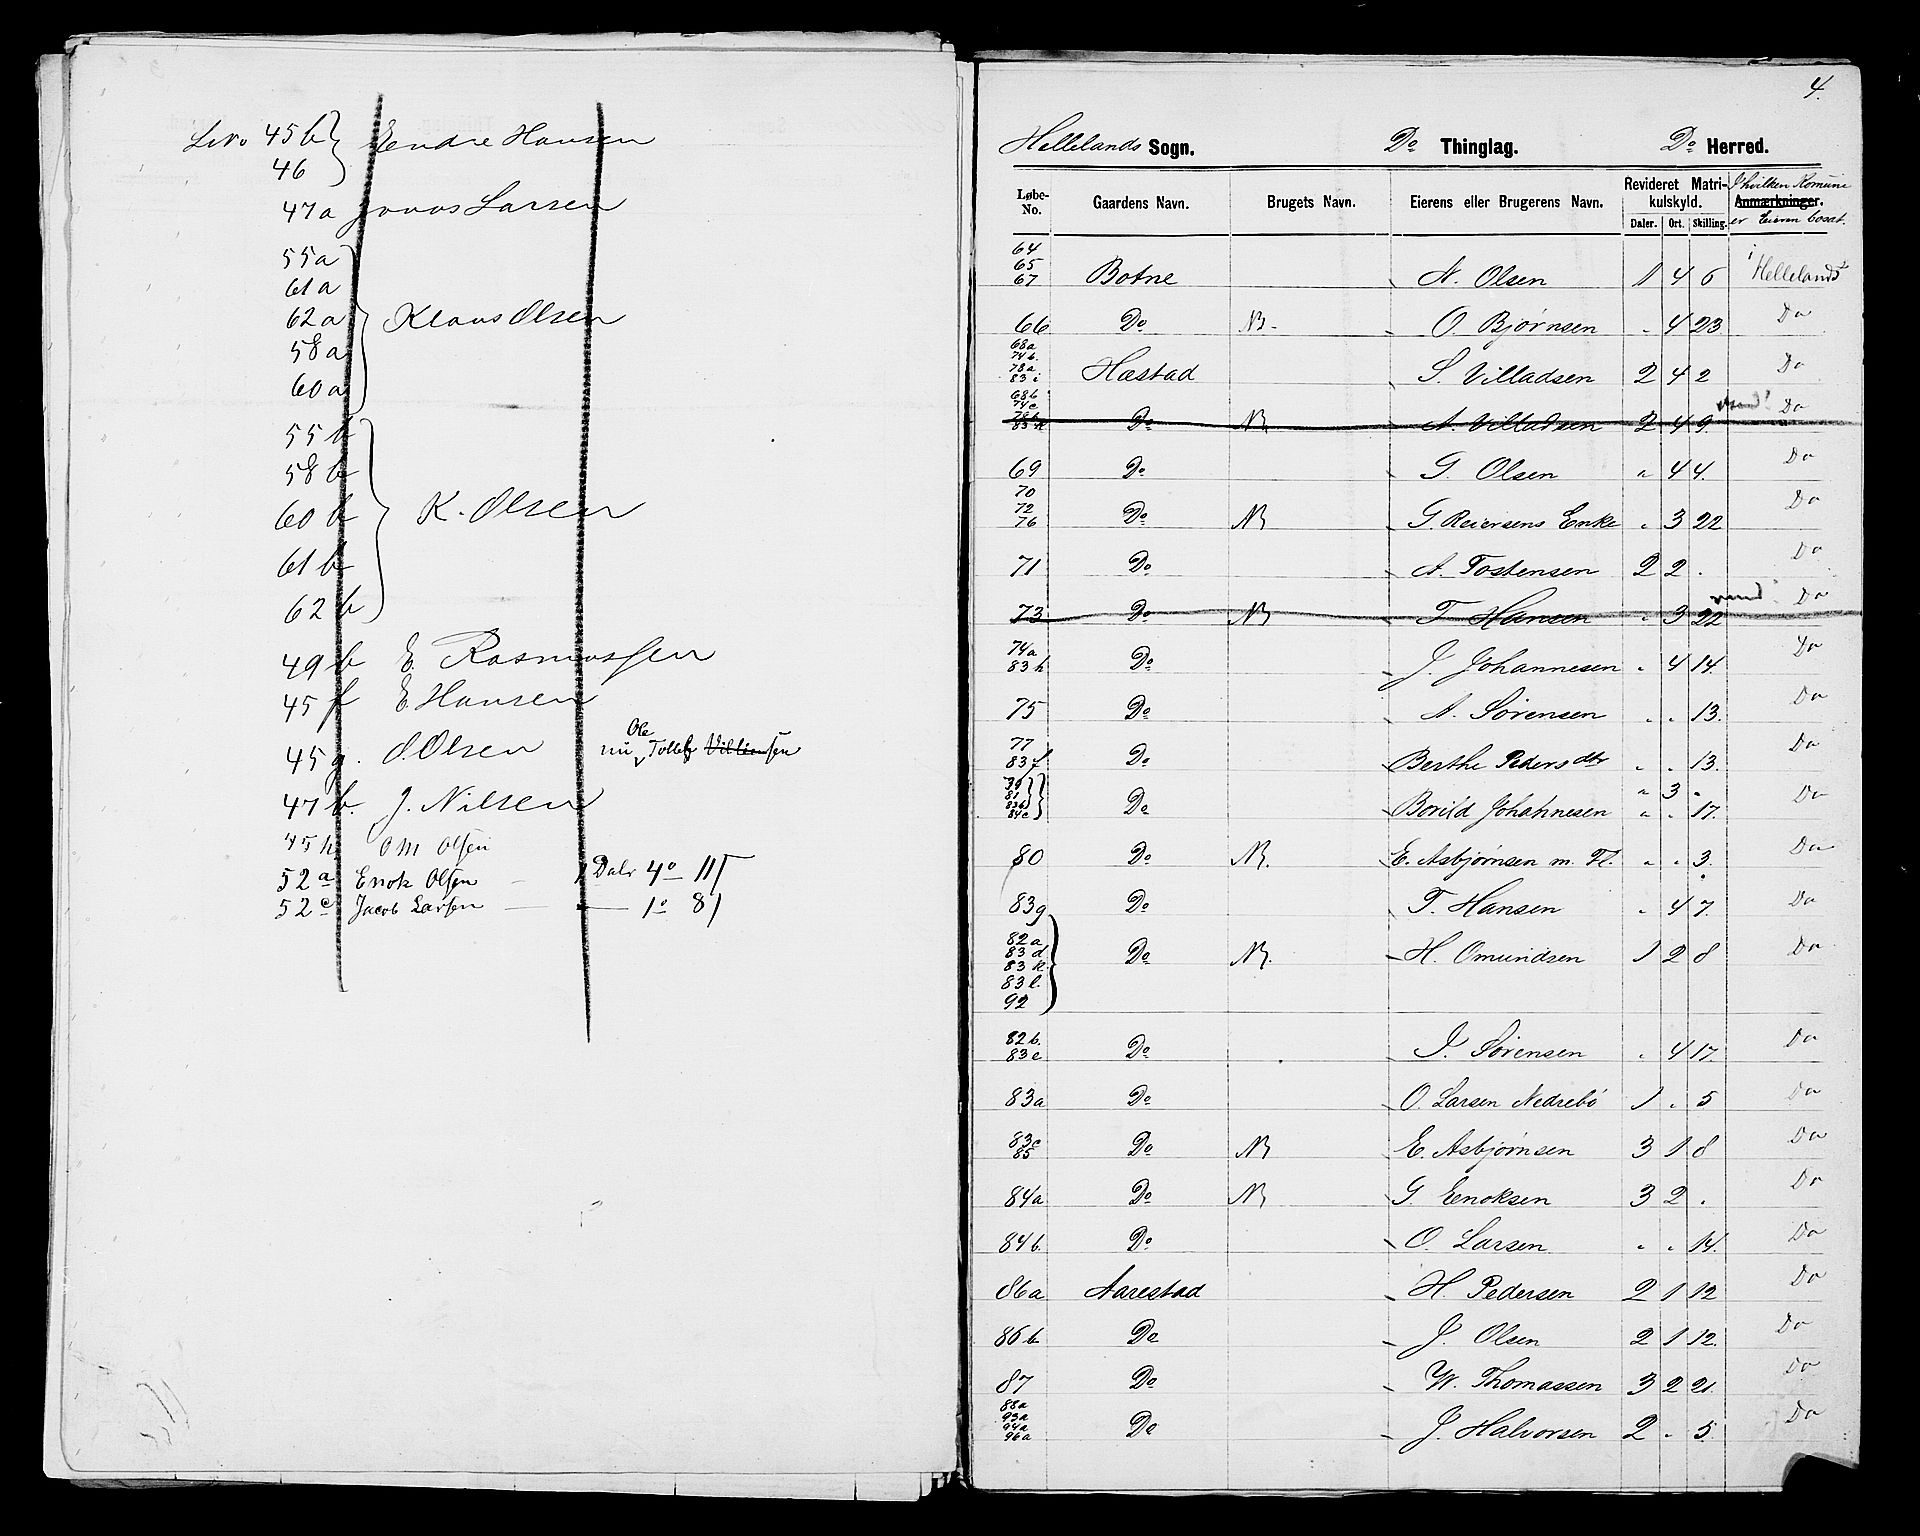 45b } Endre Hansen
46
47a Jonas Larsen
55a
61a
62a } Klaus Olsen
58a
60a
55b
58b
60b } K. Olsen
61b
62b
49b E. Rasmussen
45f E Hansen
45g. O. Olsen nu Ole Tollef
47b. J. Nilsen
45h OM Olsen
52a Enok Olsen — 1 Daler 4o 11
52c Jacob Larsen — — 1o 8
4.
Hellelands Sogn. Do Thinglag. Do Herred.
Løbe-No. Gaardens Navn. Brugets Navn. Eierens eller Brugerens Navn. Revideret Matrikulskyld. Daler. Ort. Skilling. Anmærkninger. I hvilken Komune er Eieren bosat.
64 65 67 Botne N. Olsen 1 4 6 Hellelands
66 Do NB. O. Bjørnsen " 4 23 Do
68a 74b. 78a 83i Hæstad S. Villadsen 2 4 2 Do
68b 74c 78b 83k Do NB A. Villadsen 2 4 9. Do
69 Do G. Olsen " 4 4. Do
70 72 76 Do NB G. Reiersens Enke " 3 22 Do
71 Do A. Tostensen 2 2 . Do
73 Do NB T. Hansen " 3 22 Do
74a 83h Do J. Johannesen " 4 14. Do
75 Do A. Sørensen " " 13. Do
77 83f Do Berthe Pedersdtr " " 13. Do
79 81 83b 84c Do Borild Johannesen " 3 " " " 17. Do
80 Do NB. E. Asbjørnsen m. Fl. " " 3. Do
83g Do T. Hansen " 4 7. Do
82a 83d 83k 83l. 92 Do NB. H. Omundsen 1 2 8 Do
82b. 83e Do I. Sørensen " 4 17. Do
83a Do O. Larsen Nedrebö 1 " 5 Do
83c 85 Do NB E. Asbjørnsen 3 1 8 Do
84a Do NB G. Eenoksen 3 2 . Do
84b. Do O. Larsen " " 14. Do
86a Aarestad H. Pedersen 2 1 12 Do
86b Do J. Olsen 2 1 12. Do
87 Do W. Thomassen 3 2 21. Do
88a 93a 94a 96a Do J. Halvorsen 2 " 5. Do